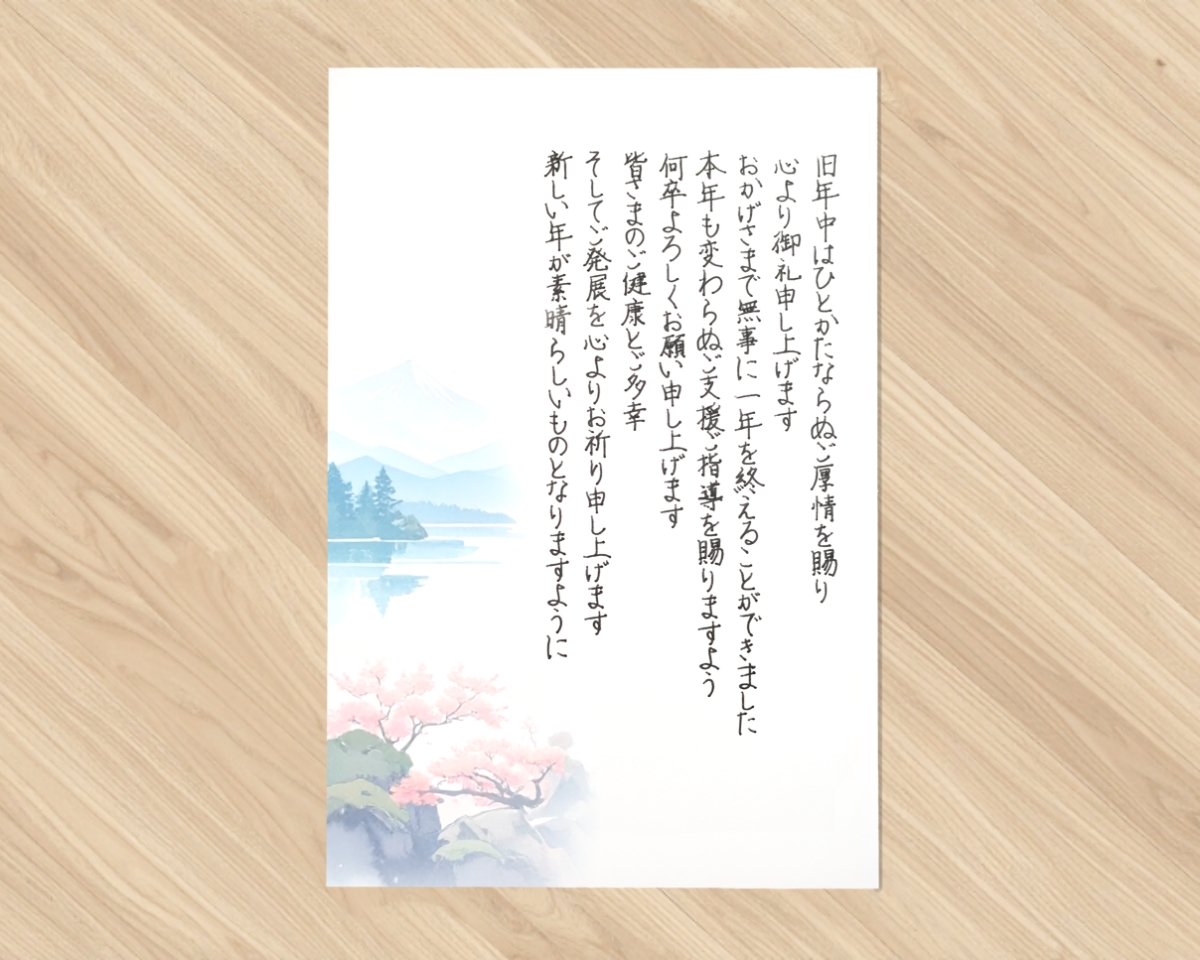 旧年中はひとかたならぬご厚情を賜り
心より御礼申し上げます
おかげさまで無事に一年を終えることができました
本年も変わらぬご支援ご指導を賜りますよう
何卒よろしくお願い申し上げます
皆さまのご健康とご多幸
そしてご発展を心よりお祈り申し上げます
新しい年が素晴らしいものとなりますように